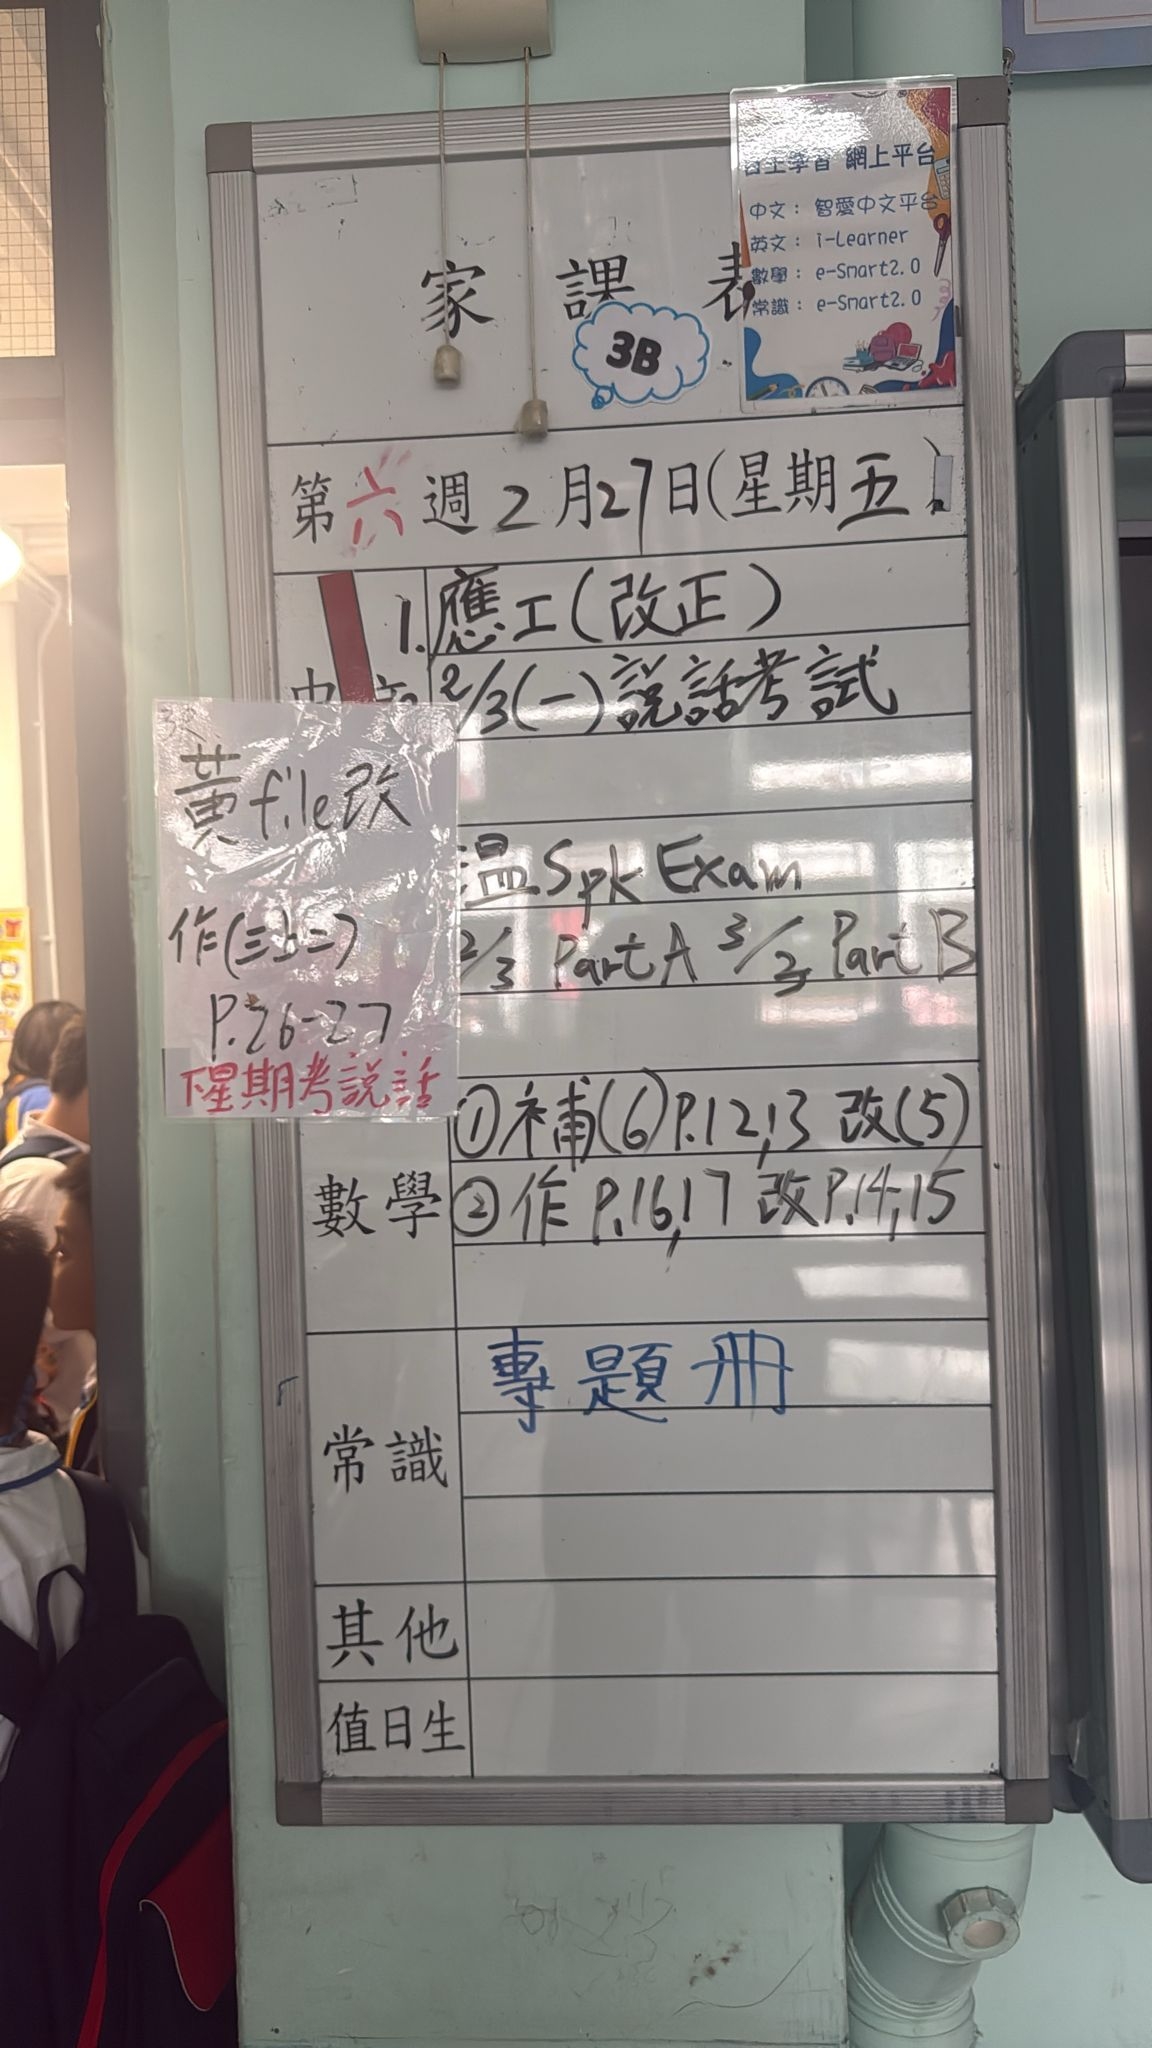 自主學習 網上平台
中文： 智愛中文平台
英文： i-Learner
數學： e-Smart2.0
常識： e-Smart2.0
家 課 表
3B
第六週2月27日(星期五)
1.應工(改正)
中文
2/3(一)說話考試
黃file改
作(三上二)
P.26-27
下星期考說話
溫Spk Exam
2/3 Part A 3/3 Part B
數學
①補(6)P.12,13 改(5)
②作 P.16,17 改P.14,15
常識
專題冊
其他
值日生